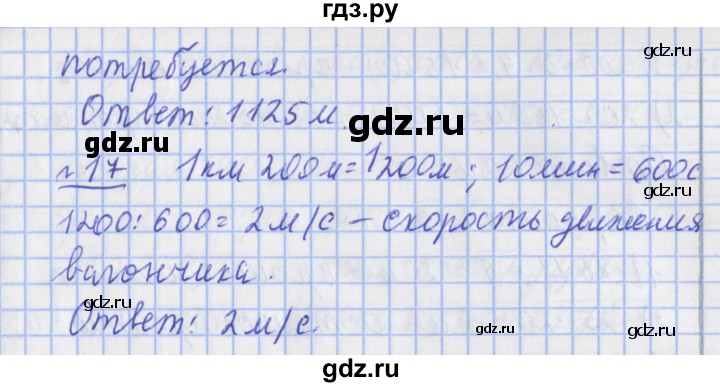 гдз.ру
потребуется. gdz.ru
Ответ: 1125 м. gdz.ru
gdz.ru
№17 1км 200м = 1200м; 10мин = 600с
gdz.ru
1200:600 = 2 м/с – скорость движения
вагончика.
gdz.ru gdz.ru
Ответ: 2 м/с.
gdz.ru
gdz.ru